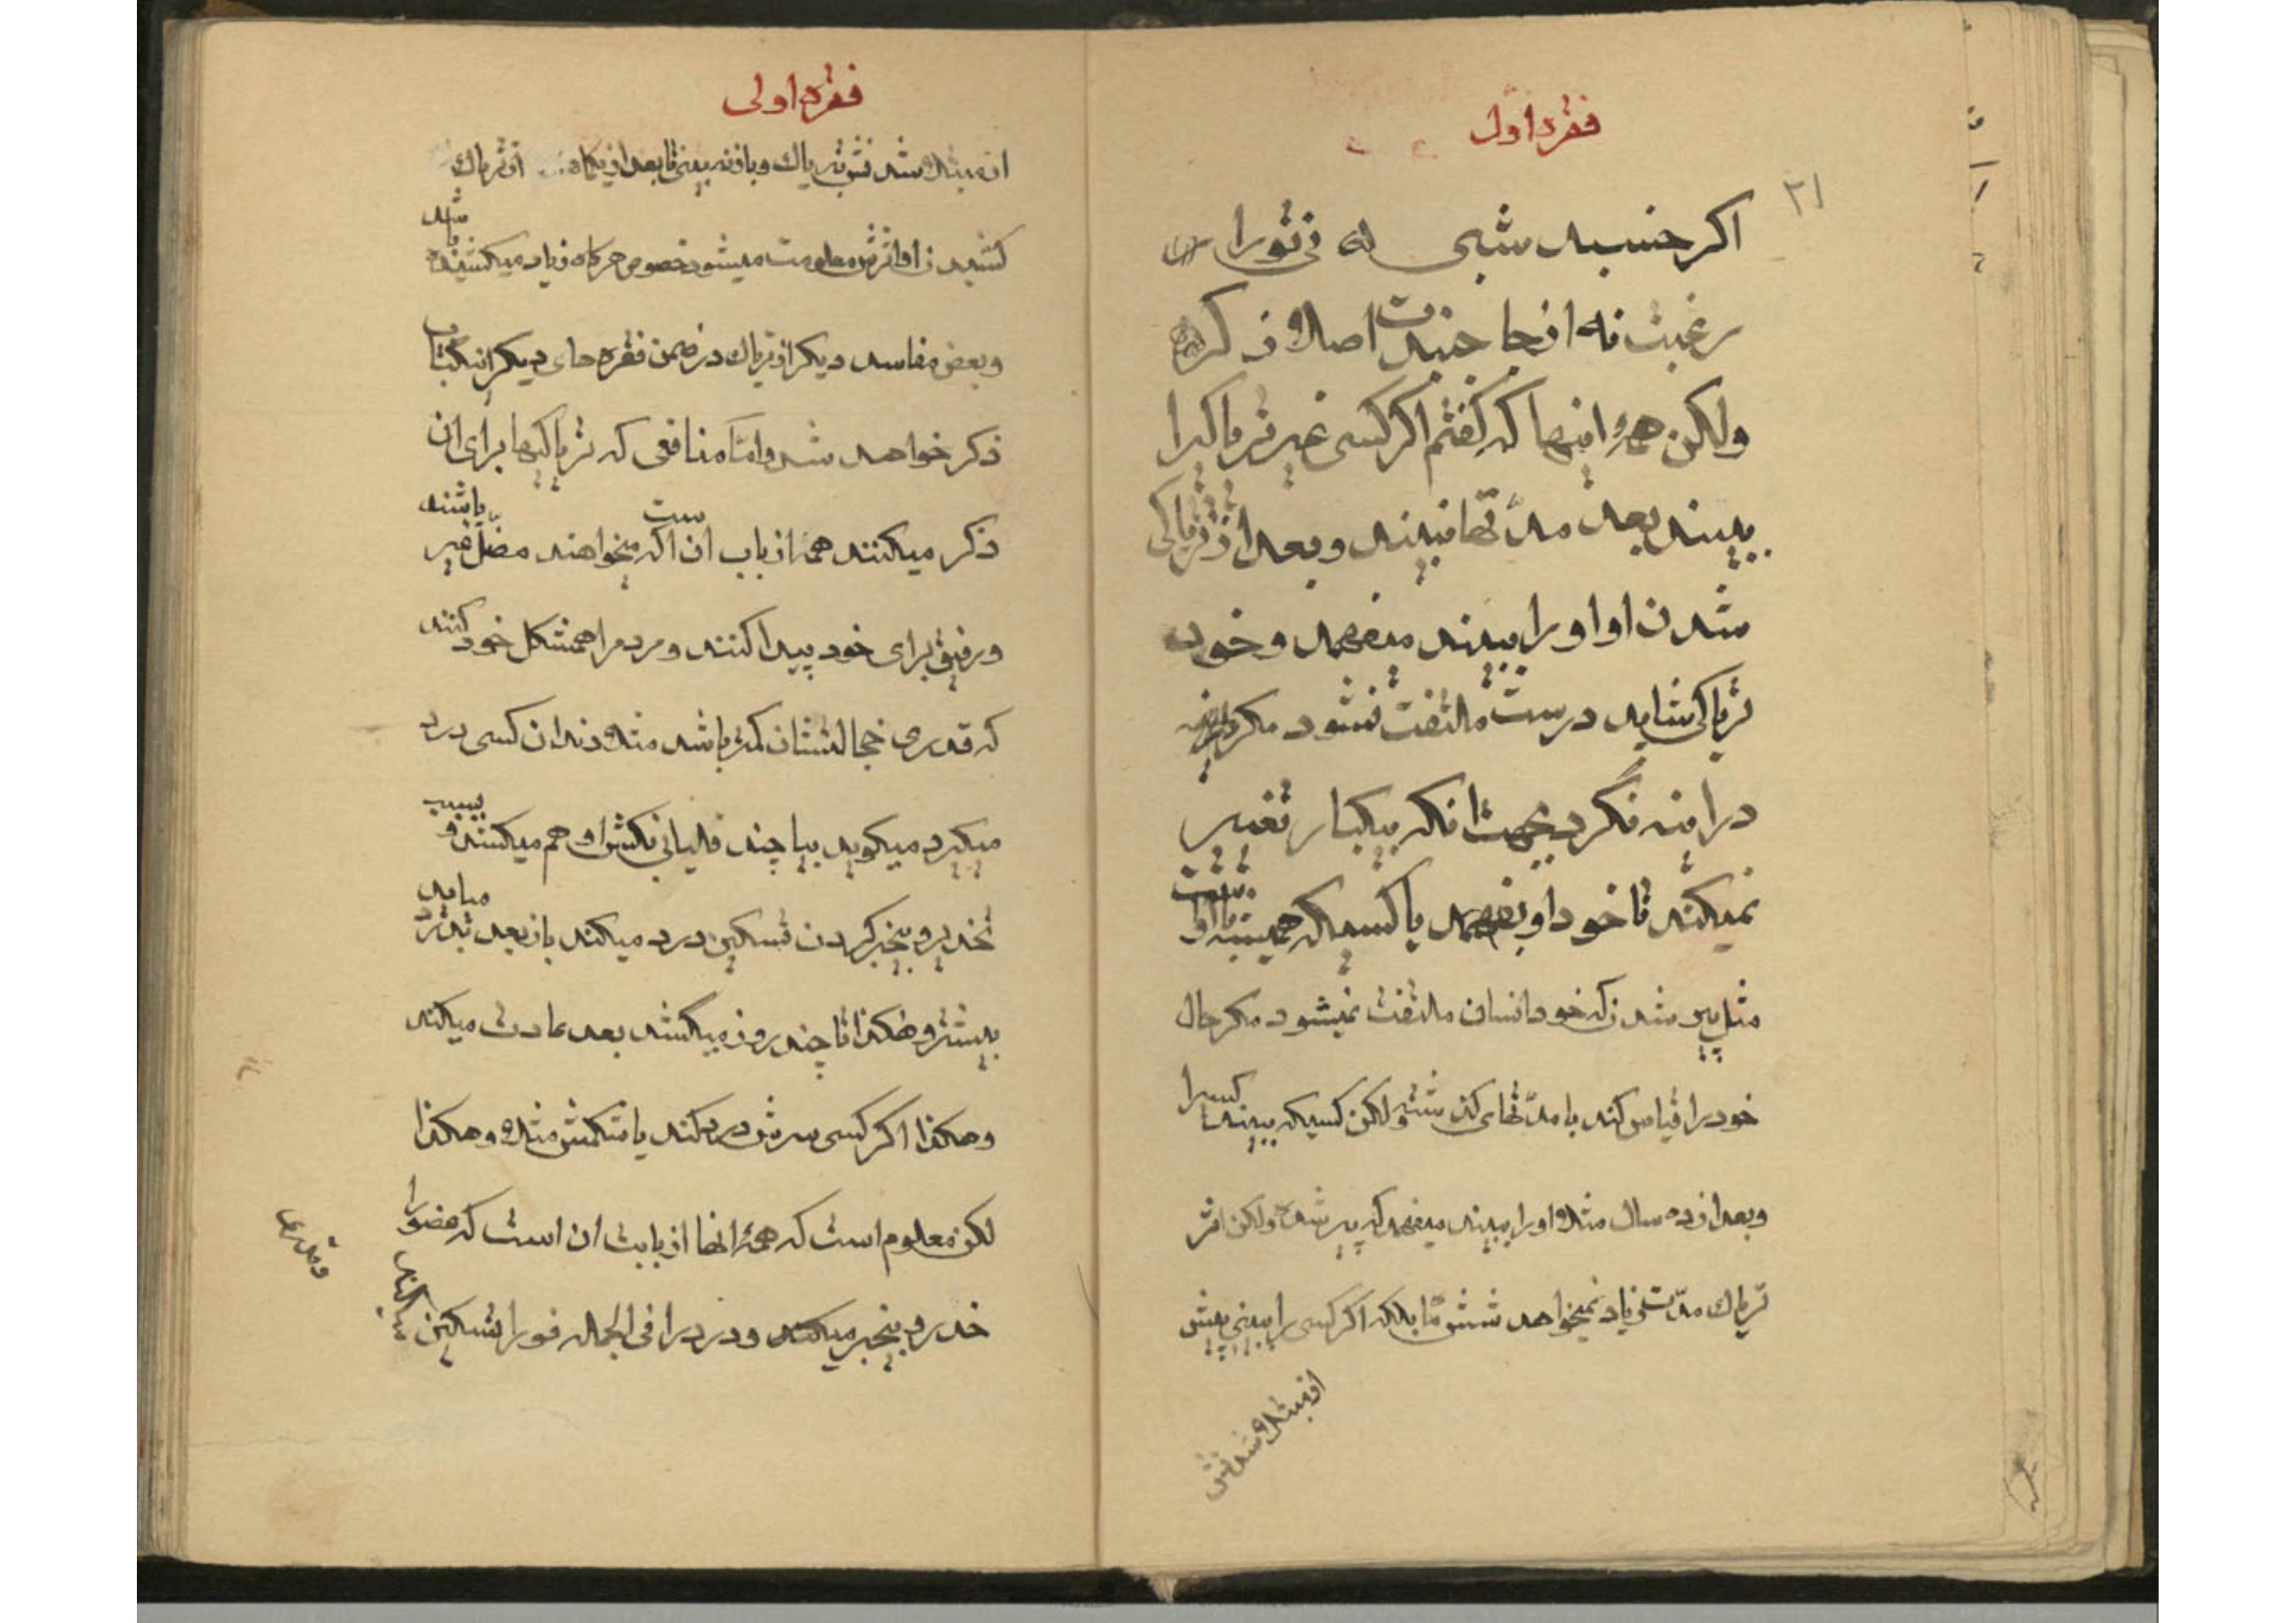 فقره اول
۲۱
اکر جنبید شبی له نی تورا
رغبت نه انجا جنبیدت اصلا نه کر
ولکن همهٔ اینها که کفتم اکر کسی غیر تریاکیرا
ببیند بعد مدتها نبیند و بعد از تریاکی
شدن او اورا ببیند میفهمد و خود
تریاکی شاید درست ملتفت نشود مکر
در اینه نگرد بجهت انکه یکبار تغییر
نمیکند تا خود او بفهمد یا کسیکه همیشه با او است
مثل پیر شدن که خود انسان ملتفت نمیشود مکر حال
خود را قیاس کند با مدتهای کذشته ولکن کسیکه ببیند کسیرا
و بعد از ده سال مثلا اورا ببیند میفهمد که پیر شده ولکن اثر
تریاک مدت زیاد نمیخواهد شش ماه بلکه اکر کسی را ببینی پیش
از مبتلا شدنش
فقره اولی
از مبتلا شدنش بتریاک و باز نه بینی تا بعد از یکماه از تریاک
کشیدن او اثرش معلومت میشود خصوص هرکاه زیاد میکشیده باشد
و بعض مفاسد دیکر از تریاک در ضمن فقره های دیکر از کتاب
ذکر خواهد شد و اما منافعی که تریاکیها برای ان
ذکر میکنند همه از باب ان است که میخواهند مضل غیر باشند
و رفیق برای خود پیدا کنند و مردم را همشکل خود کنند
که قدری خجالتشان کمتر باشد مثلا دندان کسی درد
میکیرد میکوید بیا چند قلیانی بکش او هم میکشد و بسبب
تخدیر و بیخبر کردن تسکین درد میکند باز بعد بدتر درد میاید
بیشتر و هکذا تا چند روز میکشد بعد عادت میکند
و هکذا اکر کسی سرش درد کند یا شکمش مثلا و هکذا
لکن معلوم است که همهٔ انها از بابت ان است که عضو را
خدر و بیخبر میکند و درد را فی الجمله فورا تسکین